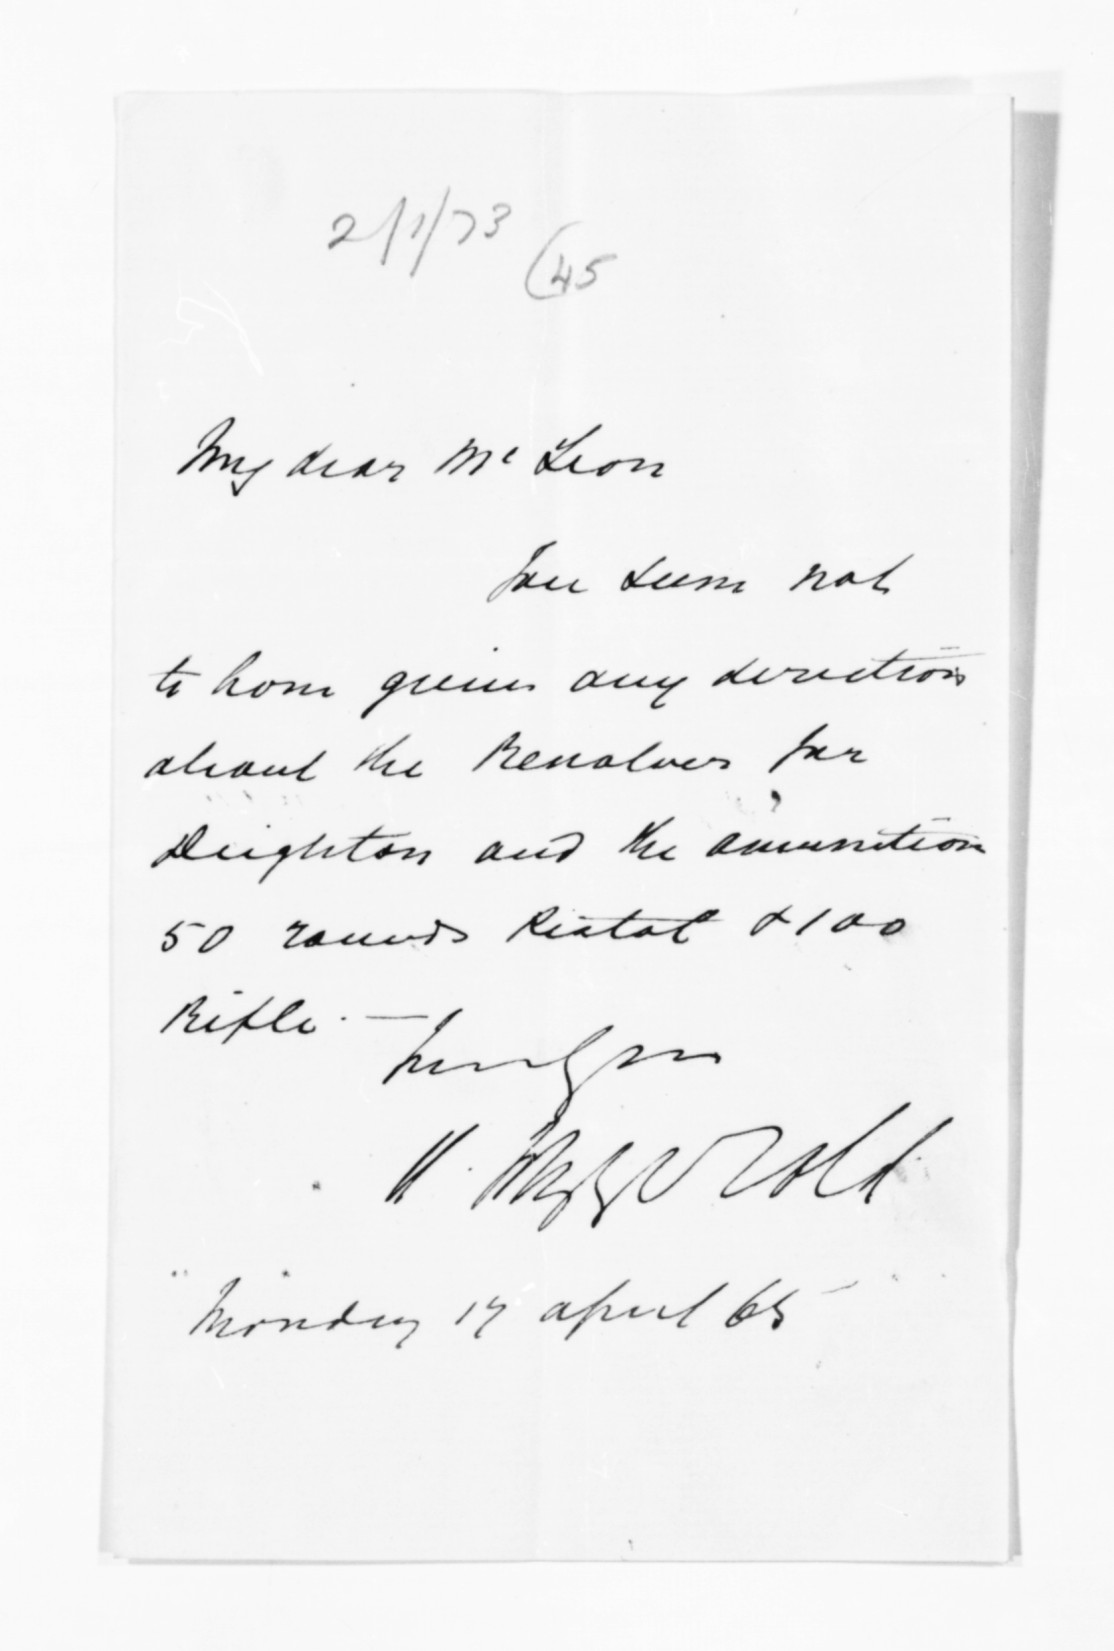 2/1/73 (45
My dear Mc Lean
You seem not
to have given any direction
about the Revolver for
Deighton and the ammunition
50 rounds Pistol & 100
Rifle. —
Truly yrs
Monday 17 April 65